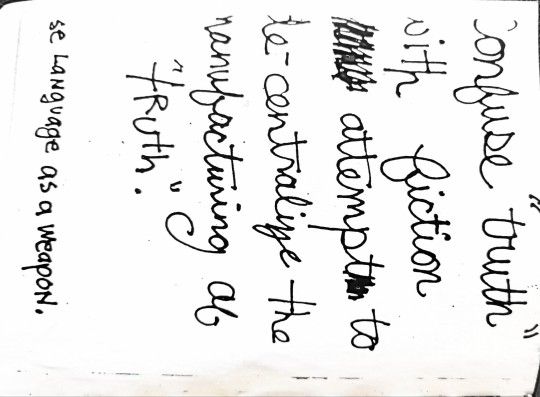 onfuse "truth"
with fiction
attempt to
de-centralize the
manufacturing of
"truth."
se Language as a weapon.